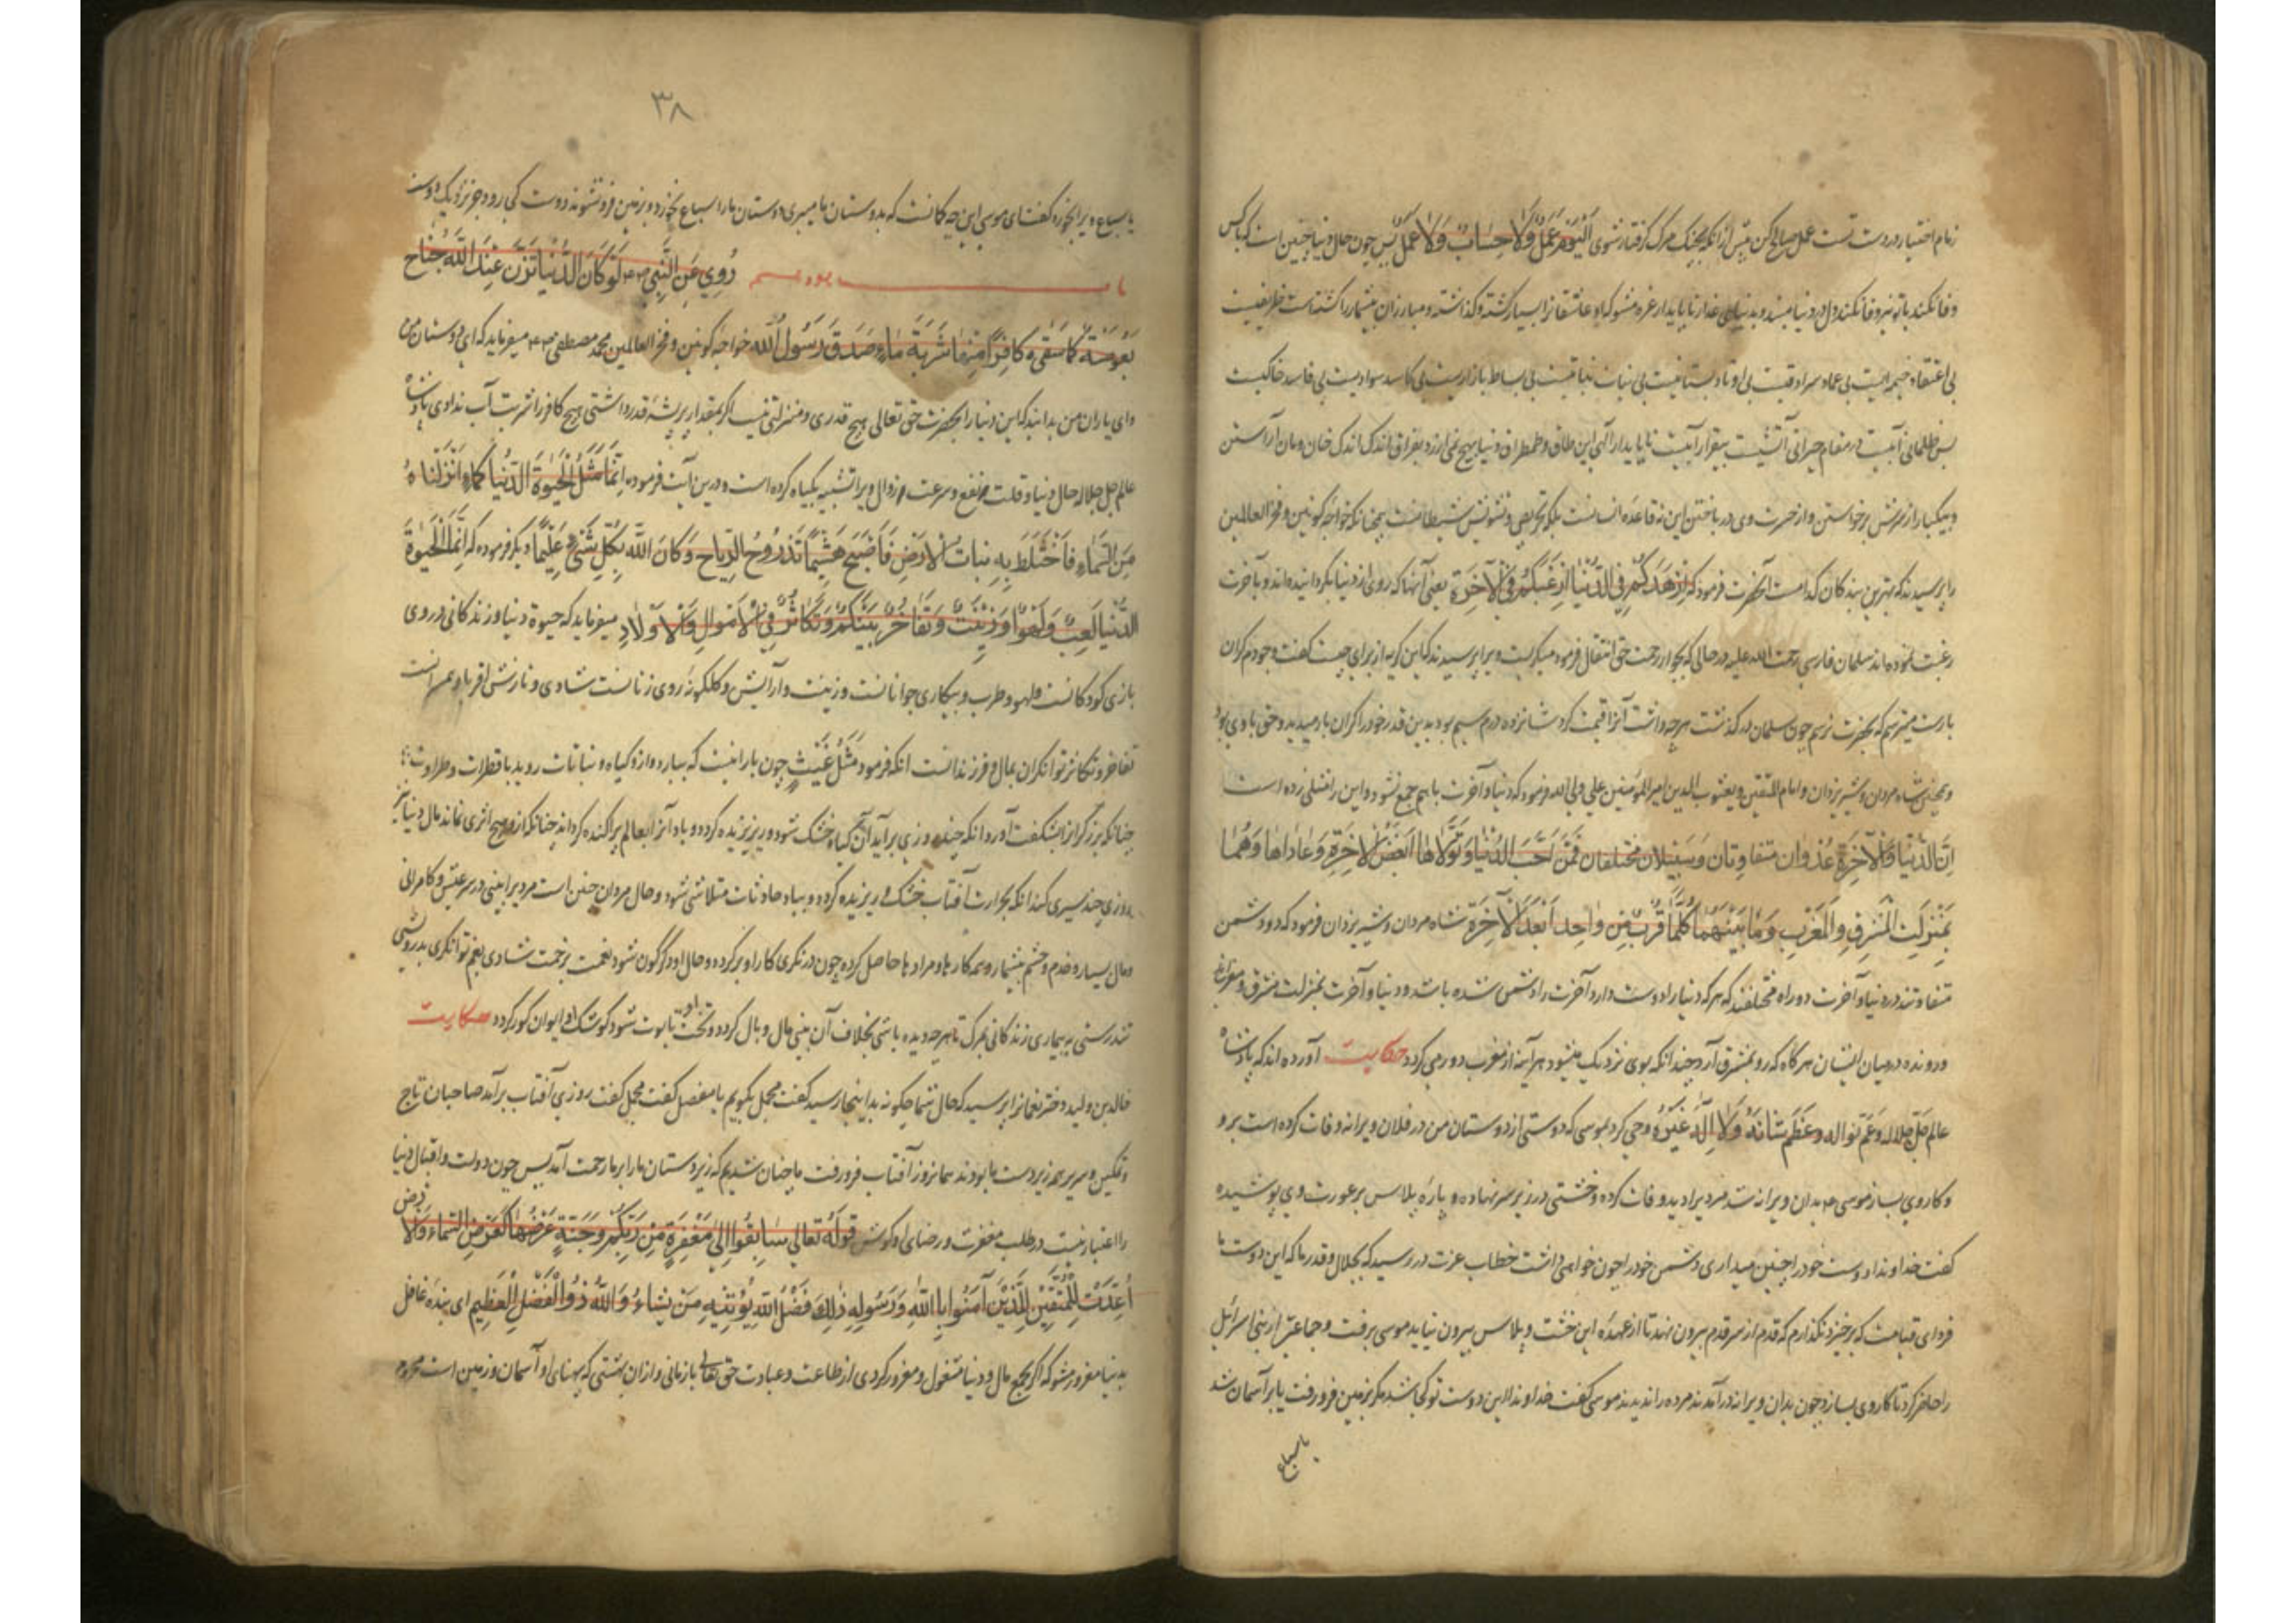 زمام اختیار در دست تست عمل صالح کن پیش از آنکه بچنک مرک گرفتار شوی اَلْیَوْمَ عَمَلٌ وَلَا حِسَابٌ وَلَا عَمَلَ پس چون حال دنیا چنین است که با کس
وفا نکند با تو نیز وفا نکند دل در دنیا مبند و بدنیای غدار ناپایدار غره مشو که او عاشقانرا بسیار کشته و کذاشته و مبارزان بیشمار را کشته است ظریفیست
بی اعتقاد خیمه ایست بی عماد سراد قیست بی اوتاد بستانیست بی نبات بی بساط بازاریست بی کاسد سوادیست بی فاسد خاکیست
بس ظلمانی آبیست در مقام حیرانی آتشیست بیقرار آبیست ناپایدار الهی این طاق و طمطراق دنیا بهیچ نمی ارزد بفراق اندک اندک خان و مان آراستن
و بیکبار از سرش برخواستن و از حسرت وی در باختن این نه قاعده انسانست بلکه تحریص و تشویش شیطانست چنانکه خواجه کونین و فخر العالمین
را پرسیدند که بهترین بندکان کدامست آنحضرت فرمود که اَزْهَدَکُمْ فِی الدُّنْیَا اَرْغَبَکُمْ فِی الْآخِرَةِ یعنی آنها که روی از دنیا بکردانیده اند و باخرت
رغبت نموده اند سلمان فارسی رحمت الله علیه در حالی که بجوار رحمت حق انتقال فرمود میکریست ویرا پرسیدند که این کریه از برای چیست کفت وجودم کران
بارست میترسم که بحضرت نرسم چون سلمان در کذشت هر چه داشت آنرا قیمت کرد شانزده درم سیم بود بدین قدر خود را کران بار میدید و حق با وی بود
و همچنین شاه مردان و شیر یزدان و امام المتقین و یعسوب الدین امیر المؤمنین علی ولی الله فرمود که دنیا و آخرت باهم جمع نشود و این را مثلی زده است
اِنَّ الدُّنْیَا وَالْآخِرَةَ عَدُوَّانِ مُتَفَاوِتَانِ وَسَبِیلَانِ مُخْتَلِفَانِ فَمَنْ اَحَبَّ الدُّنْیَا وَتَوَلَّاهَا اَبْغَضَ الْآخِرَةَ وَعَادَاهَا وَهُمَا
بِمَنْزِلَتِ الْمَشْرِقِ وَالْمَغْرِبِ وَمَا بَیْنَهُمَا کُلَّمَا قَرُبَ مِنْ وَاحِدٍ اَبْعَدَ الْآخِرَةَ شاه مردان و شیر یزدان فرمود که دو دشمن
متفاوتند در دنیا و آخرت دو راه مختلفند که هر که دنیا را دوست دارد آخرت را دشمن شده باشد و دنیا و آخرت بمنزلت مشرق و مغرب
و رونده در میان ایشان هر کاه که رو بمشرق آرد چندانکه بوی نزدیک میشود هر آینه از مغرب دور می کردد حکایت آورده اند که پادشاه
عالم جَلَّ جَلَالُه وَعَمَّ نَوَالُه وَعَظُمَ شَانُهُ وَلَا اِلَهَ غَیْرُهُ وحی کرد بموسی که دوستی از دوستان من در فلان ویرانه وفات کرده است برو
و کار وی بساز موسی ۴ بدان ویرانه شد مردیرا دید وفات کرده و خشتی در زیر سر نهاده و پاره پلاس بر عورت وی پوشیده
کفت خداوندا دوست خود را چنین میداری دشمن خود را چون خواهی داشت خطاب عزت در رسید که بجلال و قدر ما که این دوست ما
فردای قیامت که برخیزد نکذارم که قدم از سر قدم بیرون نهد تا از عهده این خشت و پلاس بیرون نیاید موسی برفت و جماعتی از بنی اسرائیل
را حاضر کرد تا کار وی بسازد چون بدان ویرانه در آمدند مرده را ندیدند موسی کفت خداوندا این دوست تو کجا شد مکر بزمین فرو رفت یا بر آسمان شد
یا سباع
۳۸
یا سباع ویرا بخورد کفت ای موسی این چه کمانست که بدوستان ما میبری دوستان ما را سباع نخورد و بزمین فرو نشوند دوست کی رود جز نزدیک دوست
رُوِیَ عَنِ النَّبِی لَوْ کَانَ الدُّنْیَا تَزِنُ عِنْدَ اللّٰهِ جَنَاحَ
بَعُوضَةٍ مَا سَقٰی کَافِرًا مِنْهَا شَرْبَةَ مَاءٍ صَدَقَ رَسُولُ اللّٰه خواجه کونین و فخر العالمین محمد مصطفی میفرماید که ای دوستان من
و ای یاران من بدانید که این دنیا را بحضرت حق تعالی هیچ قدری و منزلتی نیست اکر بمقدار پر پشه قدر داشتی هیچ کافر را شربت آب ندادی پادشاه
عالم جل جلاله حال دنیا و قلت نفع و سرعت زوال ویرا تشبیه بکیاه کرده است و درین آیت فرموده اِنَّمَا مَثَلُ الْحَیٰوةَ الدُّنْیَا کَمَاءٍ اَنْزَلْنَاهُ
مِنَ السَّمَاءِ فَاخْتَلَطَ بِهِ نَبَاتُ الْاَرْضِ فَاَصْبَحَ هَشِیمًا تَذْرُوهُ الرِّیَاحُ وَکَانَ اللّٰهُ بِکُلِّ شَیْءٍ عَلِیمًا و دیکر فرموده که اِنَّمَا الْحَیٰوةَ
الدُّنْیَا لَعِبٌ وَلَهْوٌ وَزِینَتٌ وَتَفَاخُرٌ بَیْنَکُمْ وَتَکَاثُرٌ فِی الْاَمْوَالِ وَالْاَوْلَادِ میفرماید که حیوة دنیا و زندکانی در وی
بازی کودکانست و لهو و طرب و بیکاری جوانانست و زینت و آرایش و کلکونه روی زنانست شادی و نازش اقربا و همسرانست
تفاخر و تکاثر توانکران بمال و فرزندانست آنکه فرمود مَثَلُ غَیْثٍ چون بارانیست که ببارد و از و کیاه و نباتات روید با قطرات و طراوت
چنانکه برزکرانرا بشکفت آورد آنکه چند روزی برآید آن کیاه خشک شود و ریز ریزیده کردد و باد آنرا بعالم پراکنده کرداند چنانکه از و هیچ اثری نماند مال دنیا نیز
روزی چند سیری کند آنکه بحرارت آفتاب خشک و ریزیده کردد و بباد حادثات متلاشی شود و حال مردان چنین است مردیرا بینی در سر عیش و کامرانی
و مال بسیار و خدم و حشم بیشمار و همه کارها و مرادها حاصل کرده چون در نکری کار او بر کردد و حال او دکرکون شود نعمت بزحمت شادی بغم توانکری بدرویشی
تندرستی به بیماری زندکانی بمرک تا هر چه دیده باشی بخلاف آن بینی مال وبال کردد و تخت او تابوت شود کوشک و ایوان کور کردد حکایت
خالد بن ولید دختر نعمانرا پرسید که حال شما چکونه بدینجا رسید کفت مجمل بکویم یا مفصل کفت مجمل کفت روزی آفتاب برآمد صاحبان تاج
و نکین و سریر همه زیردست ما بودند همانروز آفتاب فرو رفت ما چنان شدیم که زیردستان ما را بر ما رحمت آمد پس چون دولت و اقبال دنیا
را اعتبار نیست در طلب مغفرت و رضای او کوش قَوْلُهُ تَعَالٰی سَابِقُوا اِلٰی مَغْفِرَةٍ مِنْ رَبِّکُمْ وَجَنَّةٍ عَرْضُهَا کَعَرْضِ السَّمَاءِ وَالْاَرْضِ
اُعِدَّتْ لِلْمُتَّقِینَ لِلَّذِینَ آمَنُوا بِاللّٰهِ وَرَسُولِهِ ذٰلِكَ فَضْلُ اللّٰهِ یُؤْتِیهِ مَنْ یَشَاءُ وَاللّٰهُ ذُو الْفَضْلِ الْعَظِیمِ ای بنده غافل
بدنیا مغرور مشو که اکر بجمع مال و دنیا مشغول و مغرور کردی از طاعت و عبادت حق تعالی بازمانی و ازان بهشتی که پهنای او آسمان و زمین است محروم